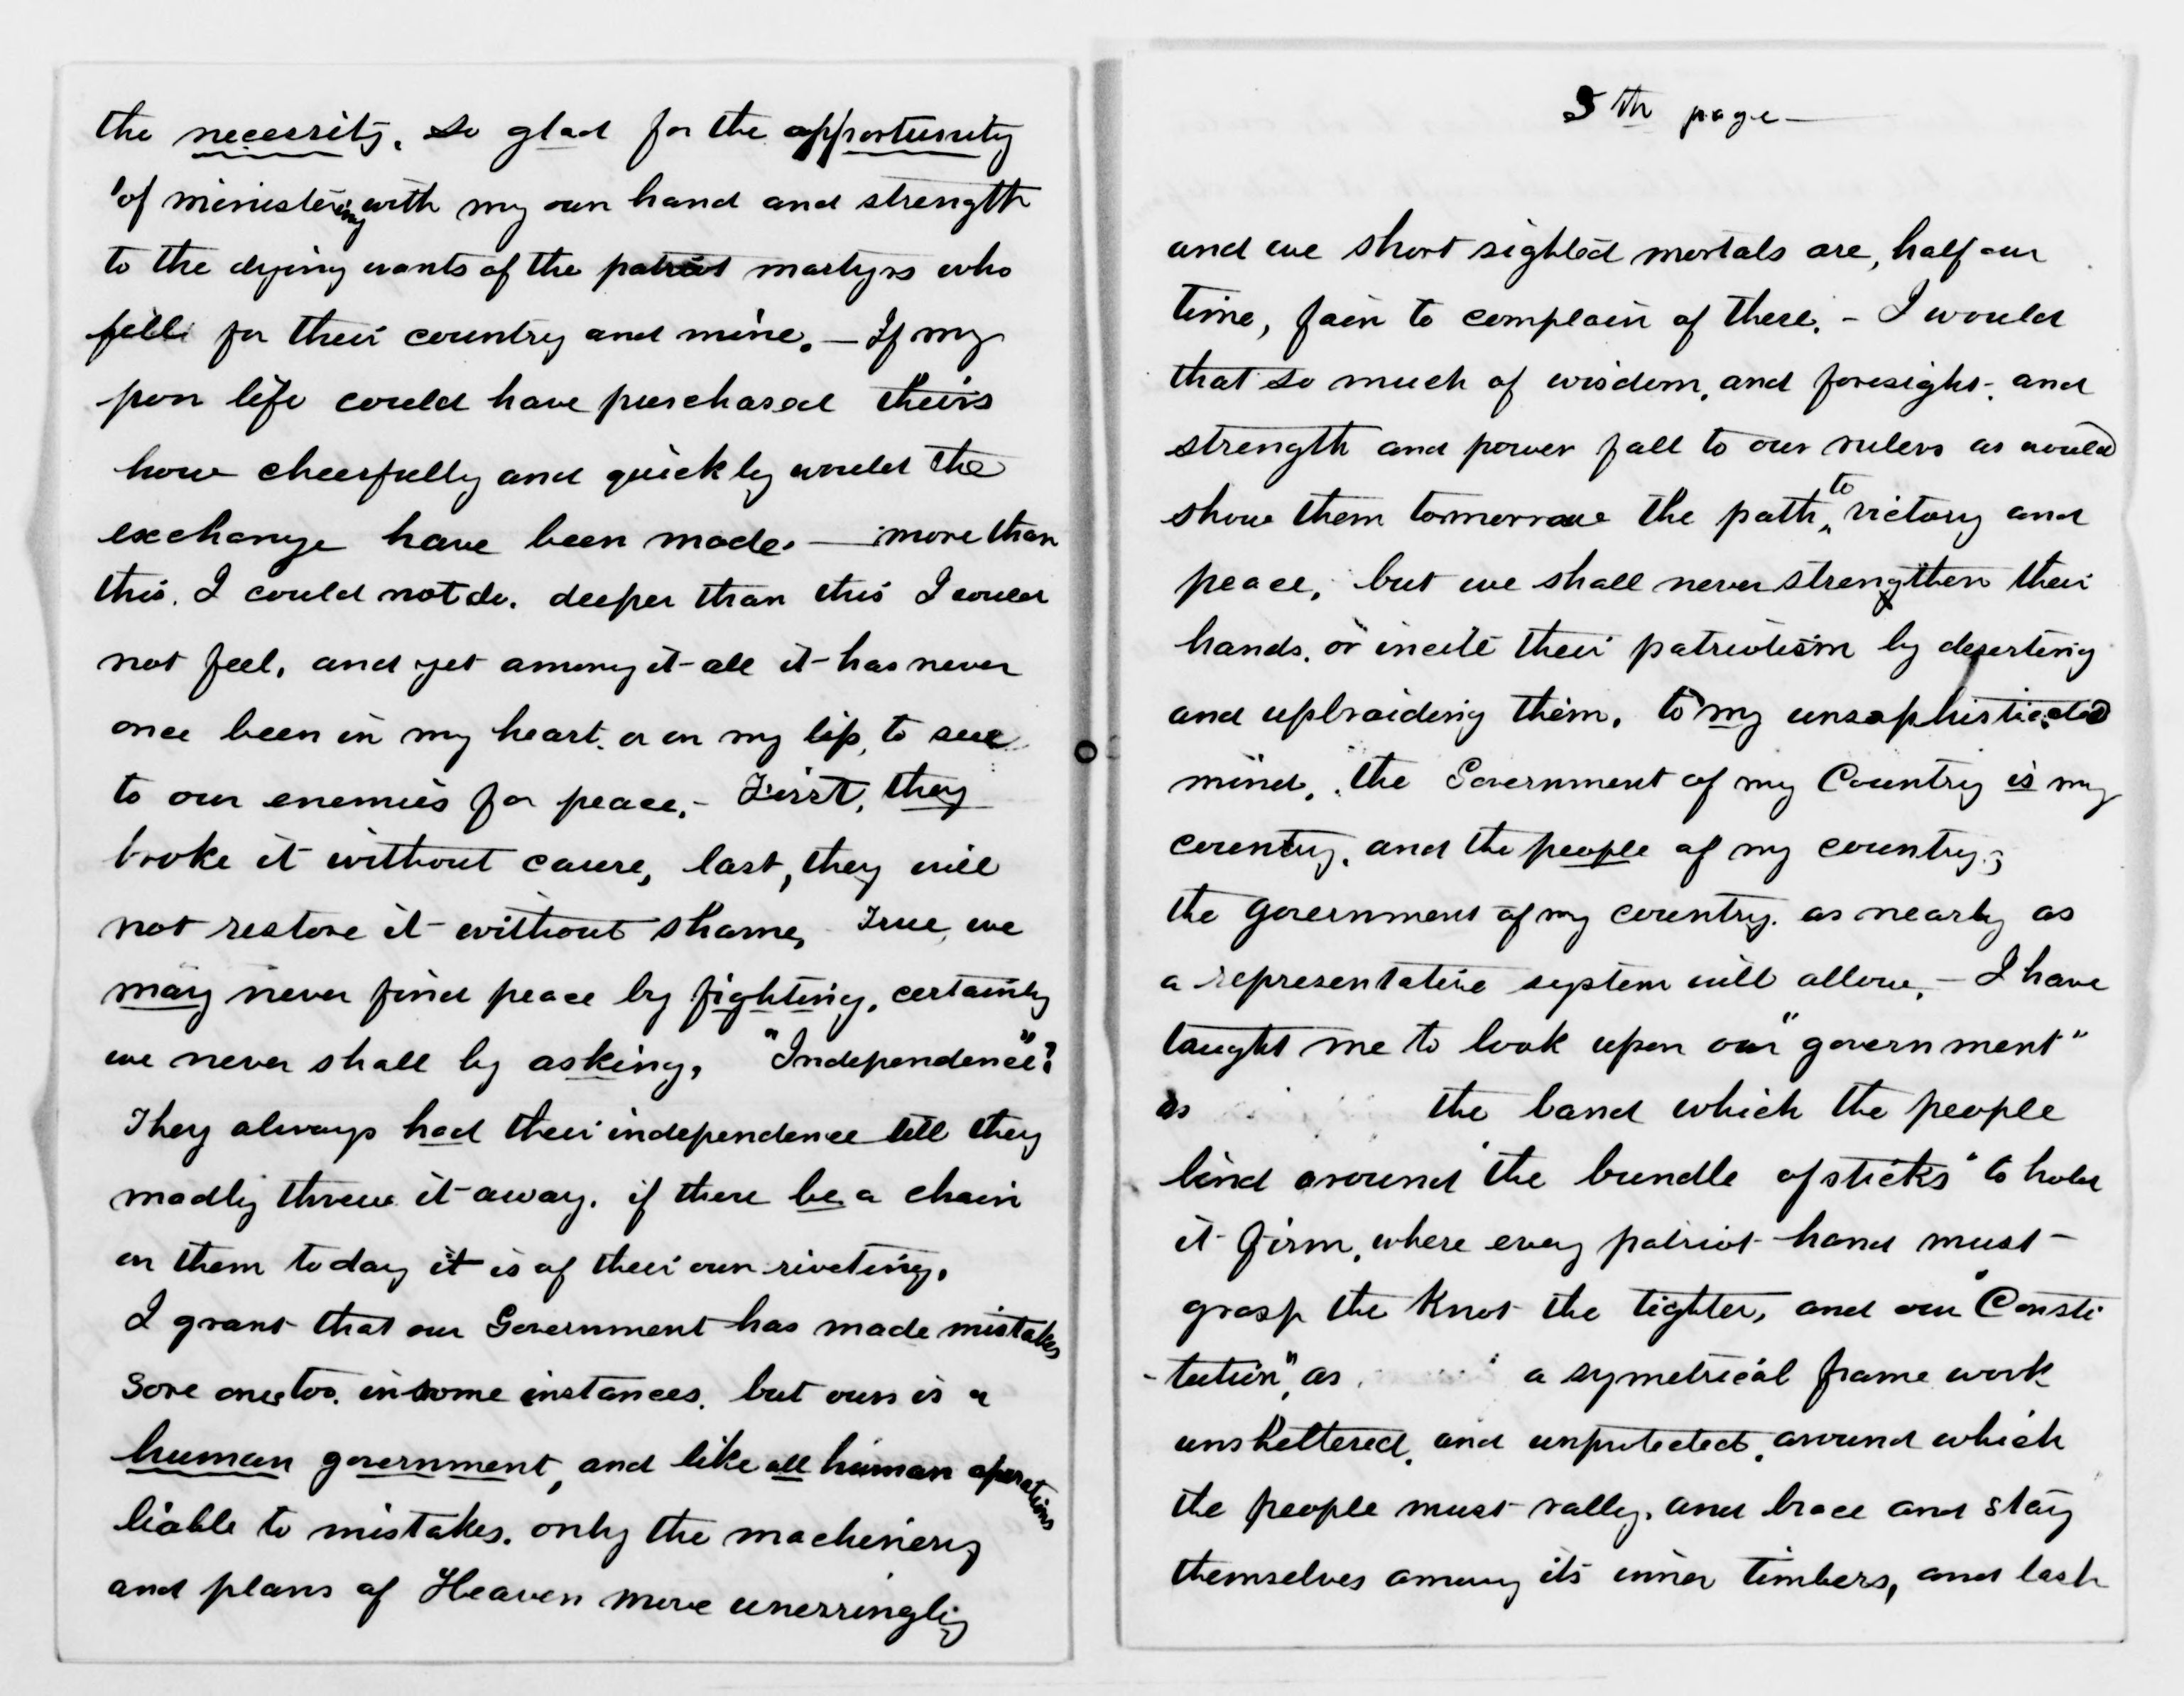 the necessity. So glad for the opportunity
of ministering with my own hand and strength
to the dying wants of the patriot martyrs who
fell for their country and mine. — If my
poor life could have purchased theirs
how cheerfully and quickly would the
exchange have been made. — more than
this. I could not do. deeper than this I could
not feel, and yet among it all it has never
once been in my heart. or on my lip, to sue
to our enemies for peace. - First, they
broke it without cause, last, they will
not restore it without shame, True, we
may never find peace by fighting, certainly
we never shall by asking, "Independence"?
They always had their independence till they
madly threw it away. if there be a chain
on them today it is of their own riveting.
I grant that our Government has made mistakes
Sore ones too. in some instances. but ours is a
human government, and like all human operations
liable to mistakes. only the machinery
and plans of Heaven move unerringly
5th page —
and we short sighted mortals are, half our
time, fain to complain of these. - I would
that so much of wisdom, and foresight. and
strength and power fall to our rulers as would
show them tommorrow the path to victory and
peace, but we shall never strengthen their
hands, or incite their patriotism by deserting
and upbraiding them. to my unsophisticated
mind, the Government of my Country is my
country, and the people of my country,
the government of my country. as nearly as
a representative system will allow. — I have
taught me to look upon our "government"
as the band which the people
bind around "the bundle of sticks" to hold
it firm, where every patriot hand must
grasp the Knot the tighter, and our "Consti
-tution", as a symetrical frame work
unsheltered, and unprotected, around which
the people must rally, and brace and stay
themselves among its inner timbers, and lash